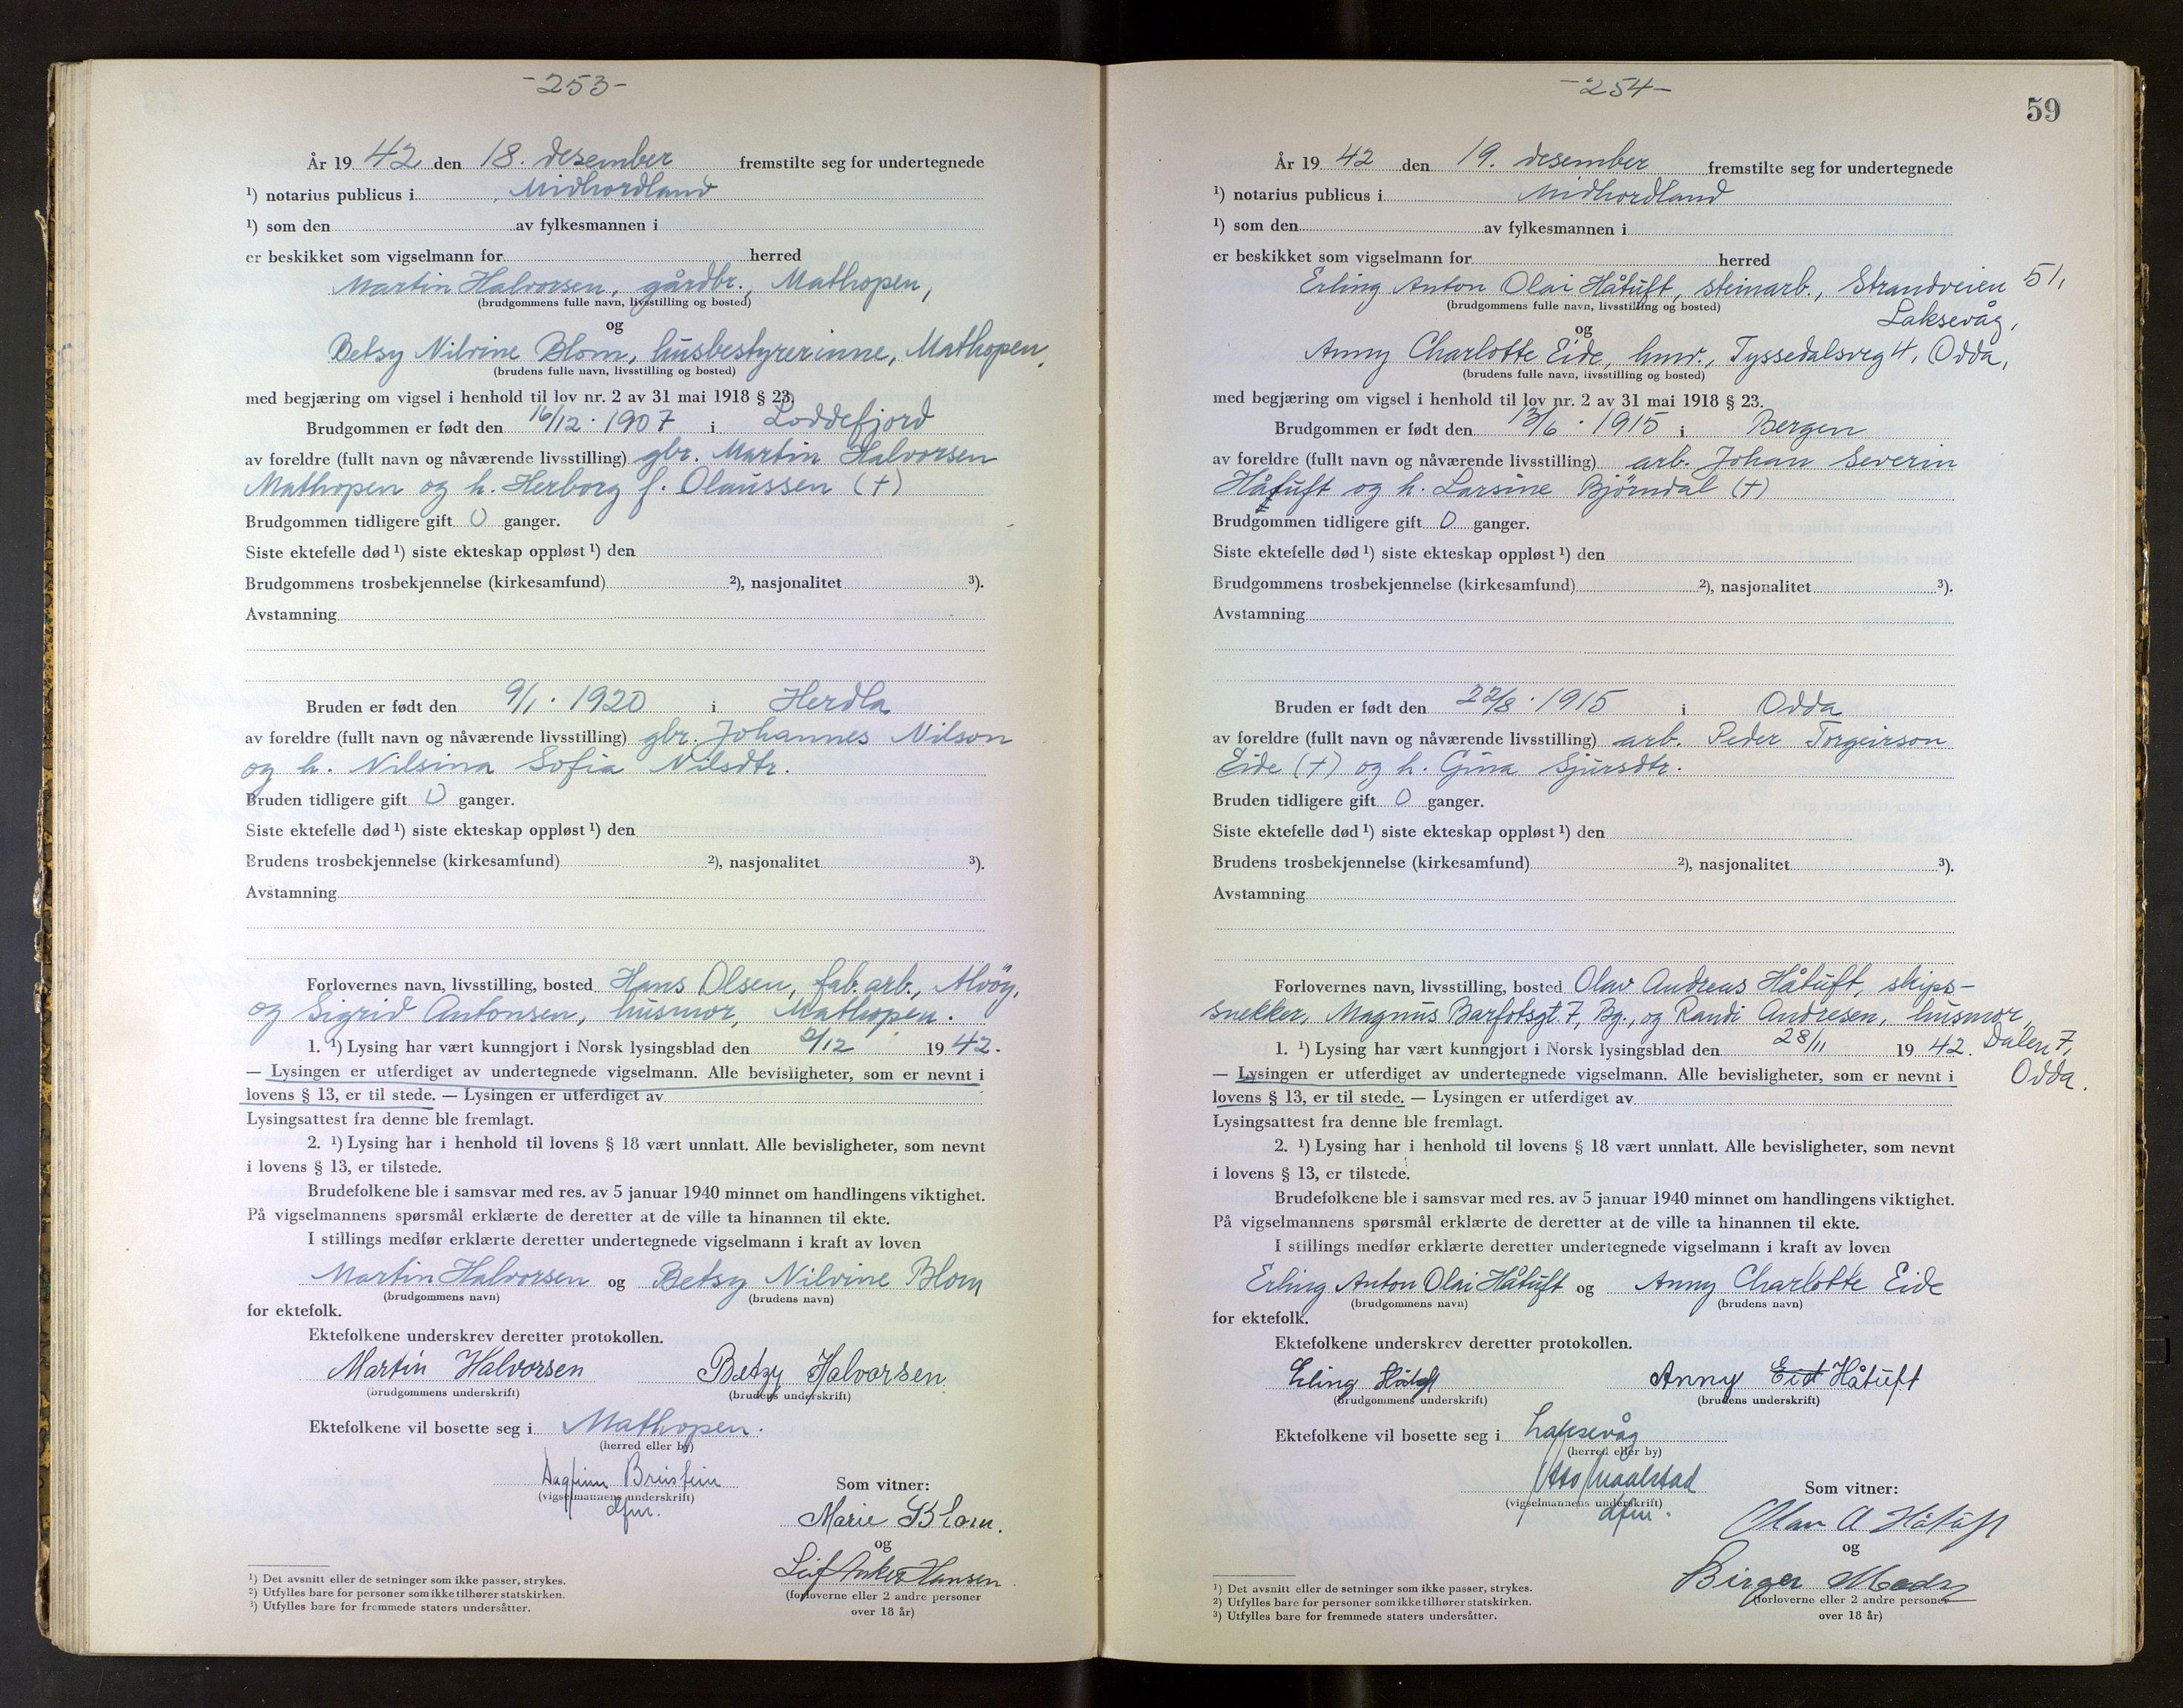 -253-
År 19 42 den 18. desember fremstilte seg for undertegnede
¹) notarius publicus i Midhordland
¹) som den av fylkesmannen i
er beskikket som vigselmann for herred
Martin Halvorsen, gårdbr., Mathopen,
(brudgommens fulle navn, livsstilling og bosted)
og
Betsy Nilvine Blom, husbestyrerinne, Mathopen,
(brudens fulle navn, livsstilling og bosted)
med begjæring om vigsel i henhold til lov nr. 2 av 31 mai 1918 § 23.
Brudgommen er født den 16/12. 1907 i Loddefjord
av foreldre (fullt navn og nåværende livsstilling) gbr. Martin Halvorsen
Mathopen og h. Herborg f. Olaussen (+)
Brudgommen tidligere gift 0 ganger.
Siste ektefelle død ¹) siste ekteskap oppløst ¹) den
Brudgommens trosbekjennelse (kirkesamfund) ²), nasjonalitet ³).
Avstamning
Bruden er født den 9/1. 1920 i Herdla
av foreldre (fullt navn og nåværende livsstilling) gbr. Johannes Nilson
og h. Nilsina Sofia Nilsdtr.
Bruden tidligere gift 0 ganger.
Siste ektefelle død ¹) siste ekteskap oppløst ¹) den
Brudens trosbekjennelse (kirkesamfund) ²), nasjonalitet ³).
Avstamning
Forlovernes navn, livsstilling, bosted Hans Olsen, fab.arb., Alvöy,
og Sigrid Antonsen, husmor, Mathopen.
1. ¹) Lysing har vært kunngjort i Norsk lysingsblad den 2/12 19 42.
— Lysingen er utferdiget av undertegnede vigselmann. Alle bevisligheter, som er nevnt i
lovens § 13, er til stede. — Lysingen er utferdiget av
Lysingsattest fra denne ble fremlagt.
2. ¹) Lysing har i henhold til lovens § 18 vært unnlatt. Alle bevisligheter, som nevnt
i lovens § 13, er tilstede.
Brudefolkene ble i samsvar med res. av 5 januar 1940 minnet om handlingens viktighet.
På vigselmannens spørsmål erklærte de deretter at de ville ta hinannen til ekte.
I stillings medfør erklærte deretter undertegnede vigselmann i kraft av loven
Martin Halvorsen og Betsy Nilvine Blom
(brudgommens navn) (brudens navn)
for ektefolk.
Ektefolkene underskrev deretter protokollen.
Martin Halvorsen Betzy Halvorsen
(brudgommens underskrift) (brudens underskrift)
Ektefolkene vil bosette seg i Mathopen.
(herred eller by)
Dagfinn
(vigselmannens underskrift)
dfm.
Som vitner:
Marie Blom.
og
Leif Anker Hansen
(forloverne eller 2 andre personer
over 18 år)
¹) Det avsnitt eller de setninger som ikke passer, strykes.
²) Utfylles bare for personer som ikke tilhører statskirken.
³) Utfylles bare for fremmede staters undersåtter.
-254-
59
År 19 42 den 19. desember fremstilte seg for undertegnede
¹) notarius publicus i Midhordland
¹) som den av fylkesmannen i
er beskikket som vigselmann for herred
Erling Anton Olai Håtuft, steinarb., Strandveien 51,
Laksevåg,
(brudgommens fulle navn, livsstilling og bosted)
og
Anny Charlotte Eide, hmv., Tyssedalsveg 4, Odda,
(brudens fulle navn, livsstilling og bosted)
med begjæring om vigsel i henhold til lov nr. 2 av 31 mai 1918 § 23.
Brudgommen er født den 13/6. 1915 i Bergen
av foreldre (fullt navn og nåværende livsstilling) arb. Johan Severin
Håtuft og h. Larsine Björndal (+)
Brudgommen tidligere gift 0 ganger.
Siste ektefelle død ¹) siste ekteskap oppløst ¹) den
Brudgommens trosbekjennelse (kirkesamfund) ²), nasjonalitet ³).
Avstamning
Bruden er født den 22/8. 1915 i Odda
av foreldre (fullt navn og nåværende livsstilling) arb. Peder Torgeirson
Eide (+) og h. Gina Sjursdtr.
Bruden tidligere gift 0 ganger.
Siste ektefelle død ¹) siste ekteskap oppløst ¹) den
Brudens trosbekjennelse (kirkesamfund) ²), nasjonalitet ³).
Avstamning
Forlovernes navn, livsstilling, bosted Olav Andreas Håtuft, skips-
snekker, Magnus Barfotsgt. 7, Bg., og Randi Andresen, husmor,
Dalen 7,
Odda.
1. ¹) Lysing har vært kunngjort i Norsk lysingsblad den 28/11 19 42.
— Lysingen er utferdiget av undertegnede vigselmann. Alle bevisligheter, som er nevnt i
lovens § 13, er til stede. — Lysingen er utferdiget av
Lysingsattest fra denne ble fremlagt.
2. ¹) Lysing har i henhold til lovens § 18 vært unnlatt. Alle bevisligheter, som nevnt
i lovens § 13, er tilstede.
Brudefolkene ble i samsvar med res. av 5 januar 1940 minnet om handlingens viktighet.
På vigselmannens spørsmål erklærte de deretter at de ville ta hinannen til ekte.
I stillings medfør erklærte deretter undertegnede vigselmann i kraft av loven
Erling Anton Olai Håtuft og Anny Charlotte Eide
(brudgommens navn) (brudens navn)
for ektefolk.
Ektefolkene underskrev deretter protokollen.
Erling Håtuft Anny Eid Håtuft
(brudgommens underskrift) (brudens underskrift)
Ektefolkene vil bosette seg i Laksevåg
(herred eller by)
Otto
(vigselmannens underskrift)
dfm.
Som vitner:
Olav A Håtuft
og
Birger
(forloverne eller 2 andre personer
over 18 år)
¹) Det avsnitt eller de setninger som ikke passer, strykes.
²) Utfylles bare for personer som ikke tilhører statskirken.
³) Utfylles bare for fremmede staters undersåtter.